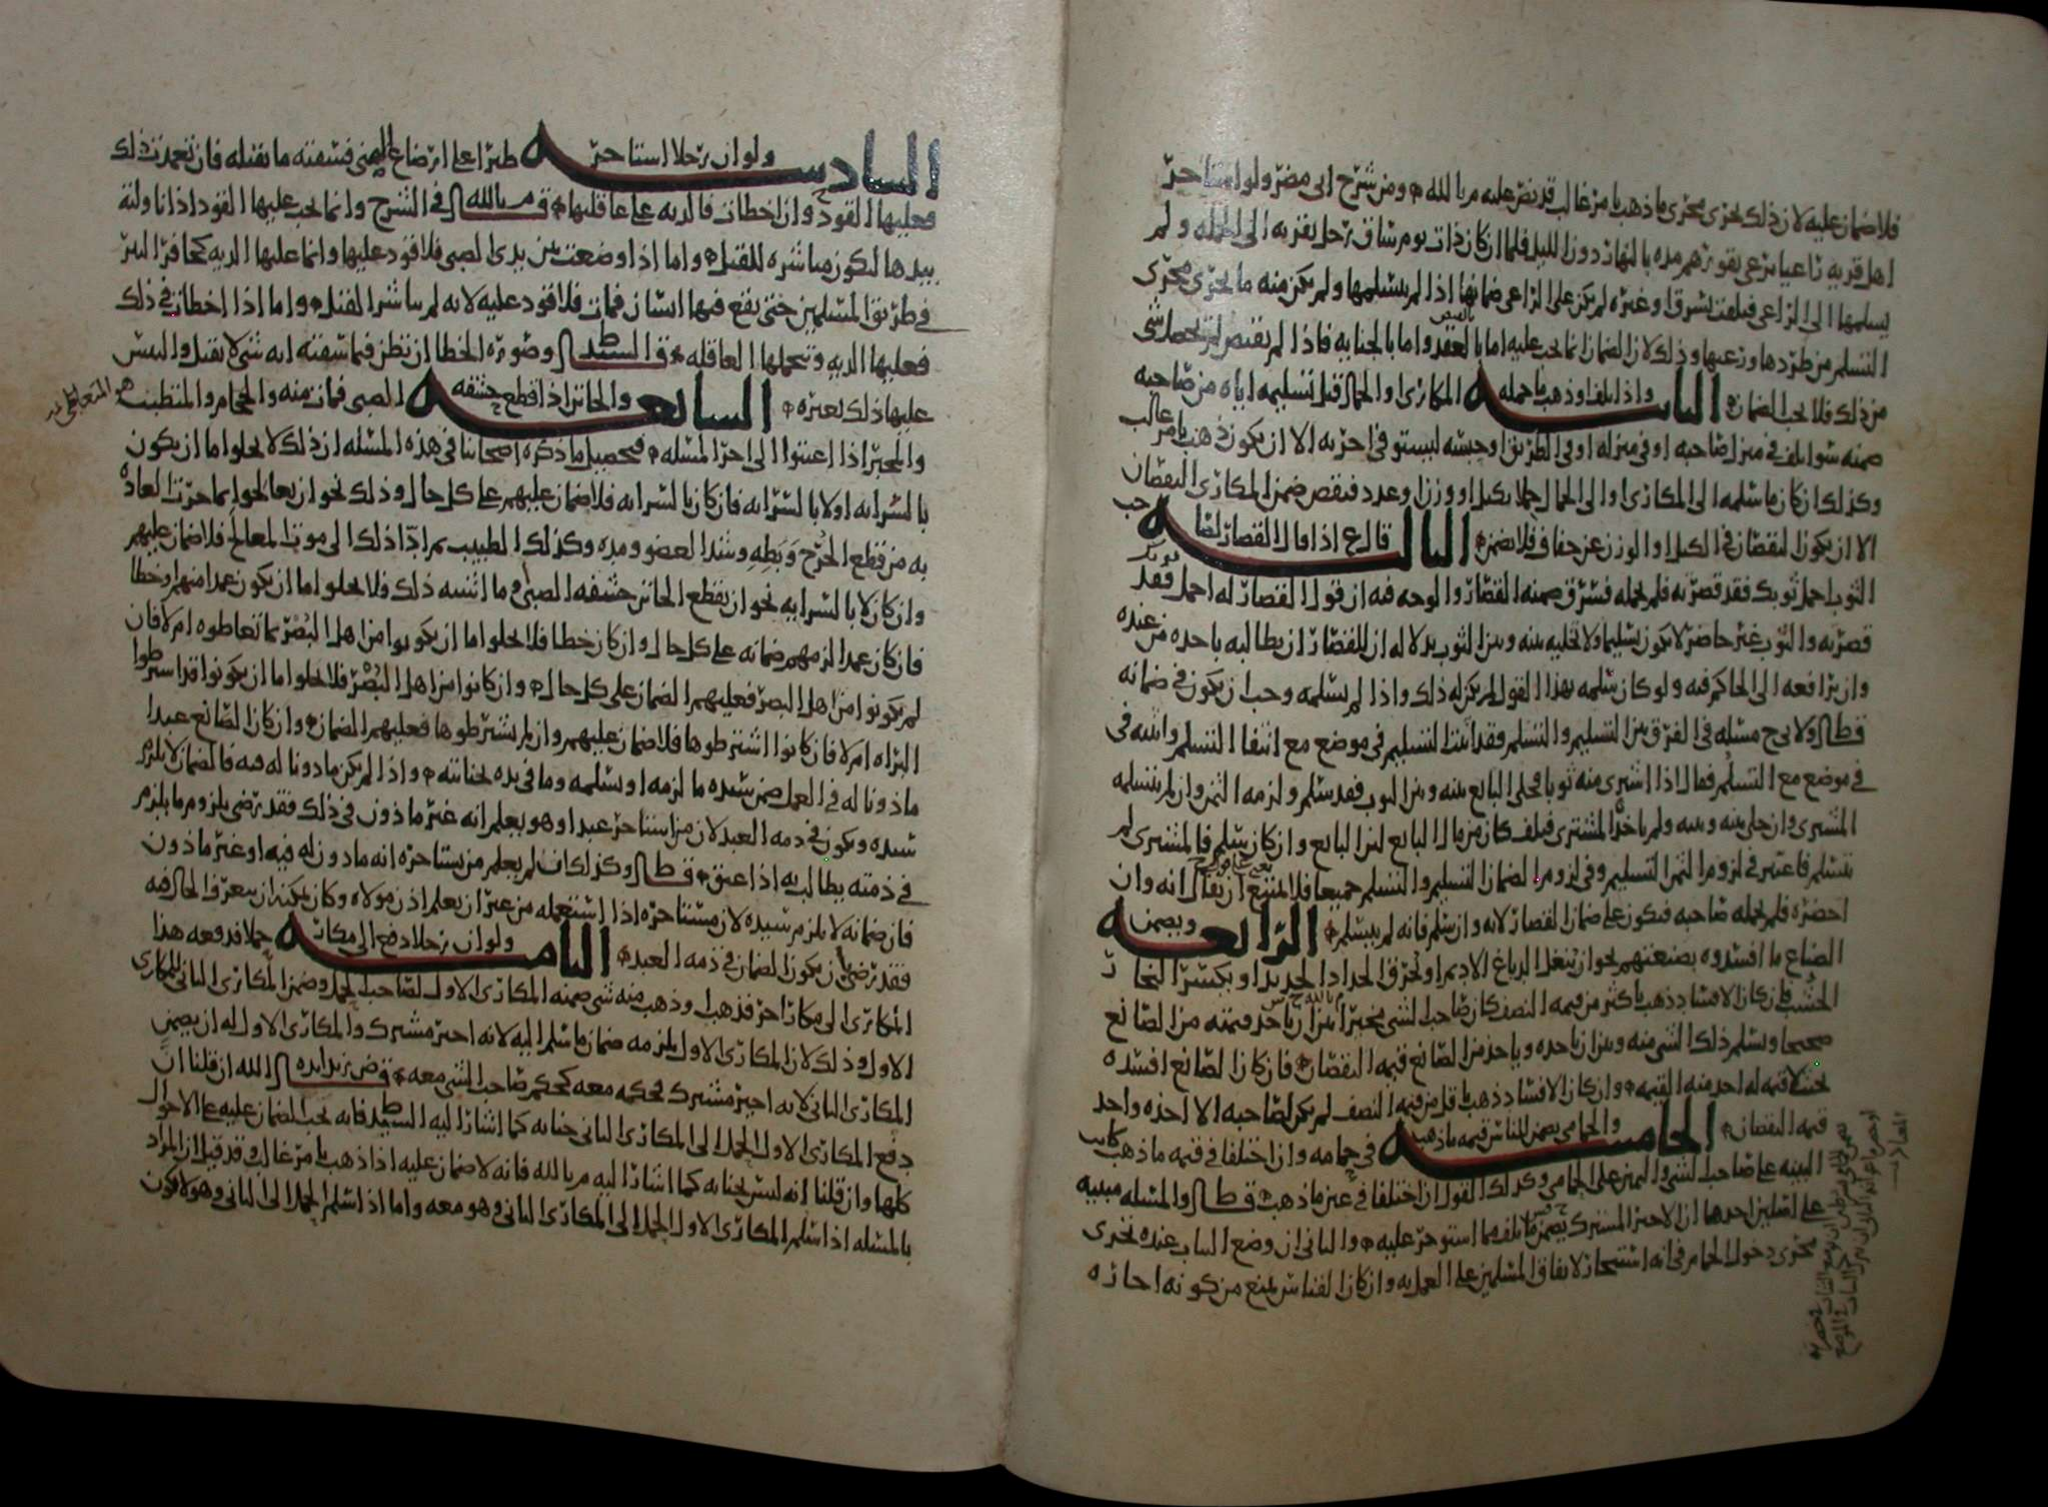 فلا ضمان عليه لان ذلك يجري مجرى ما ذهب بامر غالب قد نص عليه م بالله ومن شرح ابي مضر ولو استاجر
اهل قرية راعيا يرعى بقورهم مده بالنهار دون الليل فلما ان كان ذات يوم ساق رجل بقرته الى الجمله ولم
يسلمها الى الراعي فتلفت بسرق او غيره لم يكن على الراعي ضمانها اذا لم يتسلمها ولم يكن منه ما يجري مجرى
التسلم من طردها ورعيها وذلك لان الضمان انما يجب عليه اما بالعقد واما بالجنايه فاذا لم يقبض لم يحصل شي
من ذلك فلا يجب الضمان الثانيه واذا تلف او ذهب ما حمله المكاري والحمال قبل تسليمه اياه من صاحبه
ضمنه سوا تلف في منزل صاحبه او في منزله او في الطريق او حبسه ليستوفي اجرته الا ان يكون ذهب بامر غالب
وكذلك ان كان ما سلمه الى المكاري او الى الحمال حملا بكيل او وزن وعدد فنقص ضمن المكاري النقصان
الا ان يكون النقصان في الكيل او الوزن عن جفاف فلا يضمن الثالثه قال ع اذا قال القصار لصاحب
الثوب احمل ثوبك فقد قصرته فلم يحمله فسرق ضمنه القصار والوجه فيه ان قول القصار له احمل ثوبك فقد
قصرته والثوب غير حاضر لا يكون تسليما ولا تخليه بينه وبين الثوب بدلاله ان للقصار ان يطالبه باخذه من عنده
وان يرافعه الى الحاكم فيه ولو كان سلمه بهذا القول لم يكن له ذلك واذا لم يسلمه وجب ان يكون في ضمانه
قال ولا بي ح مسئله في الفرق بين التسليم والتسلم فقد اثبت التسليم في موضع مع انتفا التسلم واثبته في
في موضع مع التسلم فقال اذا اشترى منه ثوبا فخلى البايع بينه وبين الثوب فقد سلم ولزمه الثمن وان لم يتسلمه
المشتري وان خلى بينه وبينه ولم ياخذ المشتري فتلف كان من مال البايع لان البايع وان كان سلم فالمشتري لم
يتسلم فاعتبر في لزوم الثمن التسليم وفي لزوم الضمان التسليم والتسلم جميعا فلا يمتنع ان يقال انه وان
احضره فلم يحمله صاحبه فيكون على ضمان القصار لانه وان سلم فانه لم يتسلم الرابعه ويضمن
الصناع ما افسدوه بصنعتهم نحو ان ينغل الدباغ الاديم او يحرق الحداد الحديد او يكسر النجار
الخشب فان كان الافساد ذهب باكثر من قيمه النصف كان صاحب الشي مخيرا بين ان ياخذ قيمته من الصانع
صحيحا ويسلم ذلك الشي منه وبين ان ياخذه وياخذ من الصانع قيمه النقصان فان كان الصانع افسده
بحيث لا قيمه له اخذ منه القيمه وان كان الافساد ذهب باقل من قيمه النصف لم يكن لصاحبه الا اخذه واخذ
قيمه النقصان الخامسه والحمامي يضمن للناس قيمه ما ذهب في حمامه وان اختلفا في قيمه ما ذهب كانت
البينه على صاحب الشي واليمين على الحمامي وكذلك القول ان اختلفا في عين ما ذهب قال والمسئله مبنيه
على اصلين احدهما ان الاجير المشترك يضمن ما تلف مما استوجر عليه والثاني ان وضع الثياب عنده تجري
مجرى دخول الحمام في انه استيجار لاتفاق المسلمين على العمل به وان كان القياس يمنع من كونه اجاره
السادسه ولو ان رجلا استاجر ظئرا على ارضاع الصبي فسقته ما يقتله فان تعمدت ذلك
فعليها القود وان اخطات فالديه على عاقلتها قال م بالله في الشرح وانما يجب عليها القود اذا ناولته
بيدها لتكون مباشره للقتل واما اذا وضعت بين يدي الصبي فلا قود عليها وانما عليها الديه كحافر البير
في طريق المسلمين حتى يقع فيها انسان فمات فلا قود عليه لانه لم يباشر القتل واما اذا اخطات في ذلك
فعليها الديه وتحملها العاقله قال السيد ط وصوره الخطا ان تظن فيما سقته انه شي لا يقتل والتبس
عليها ذلك بغيره السابعه والخاتن اذا قطع حشفه الصبي فمات منه والحجام والمتطبب
والمجبر اذا اعنتوا الى اخر المسئله فتحصيل ما ذكره اصحابنا في هذه المسئله ان ذلك لا يخلوا اما ان يكون
بالسرايه او لا بالسرايه فان كان بالسرايه فلا ضمان عليهم على كل حال وذلك نحو ان يعالجوا بما جرت العاده
به من قطع الجرح وبطه وشد العضو ومده وكذلك الطبيب ثم ادا ذلك الى موت المعالج فلا ضمان عليهم
وان كان لا بالسرايه نحو ان يقطع الخاتن حشفه الصبي وما اشبه ذلك فلا يخلوا اما ان يكون عمدا منهم او خطا
فان كان عمدا لزمهم ضمانه على كل حال وان كان خطا فلا يخلوا اما ان يكونوا من اهل البصر بما تعاطوه ام لا فان
لم يكونوا من اهل البصر فعليهم الضمان على كل حال وان كانوا من اهل البصر فلا يخلوا اما ان يكونوا قد اشترطوا
البراه ام لا فان كانوا اشترطوها فلا ضمان عليهم وان لم يشترطوها فعليهم الضمان وان كان الصانع عبدا
ماذونا له في العمل ضمن سيده ما لزمه او يسلمه وما في يده لجنايته واذا لم يكن ماذونا له فيه فالضمان لا يلزم
سيده ويكون في ذمه العبد لان من استاجر عبدا وهو يعلم انه غير ماذون في ذلك فقد رضي بلزوم ما يلزم
في ذمته يطالب به اذا عتق قال وكذلك ان لم يعلم من يستاجره انه ماذون له فيه او غير ماذون
فان ضمانه لا يلزم سيده لان مستاجره اذا استعمله من غير ان يعلم اذن مولاه وكان يمكنه ان يتعرف الحال فيه
فقد رضي بان يكون الضمان في ذمه العبد الثامنه ولو ان رجلا دفع الى مكار حملا فدفعه هذا
المكاري الى مكار اخر فذهب او ذهب منه شي ضمنه المكاري الاول لصاحب الحمل وضمن المكاري الثاني للمكاري
الاول وذلك لان المكاري الاول يلزمه ضمان ما سلم اليه لانه اجير مشترك والمكاري الاول له ان يضمن
المكاري الثاني لانه اجير مشترك فحكمه معه كحكم صاحب الشي معه قال ض زيد ايده الله ان قلنا ان
دفع المكاري الاول الحمل الى المكاري الثاني جنايه كما اشار اليه السيد ط فانه يجب الضمان عليه على الاحوال
كلها وان قلنا انه ليس بجنايه كما اشار اليه م بالله فانه لا ضمان عليه اذا ذهب بامر غالب وقد قيل ان المراد
بالمسئله اذا سلم المكاري الاول الحمل الى المكاري الثاني وهو معه واما اذا سلم الحمل الى الثاني وهو لا يكون